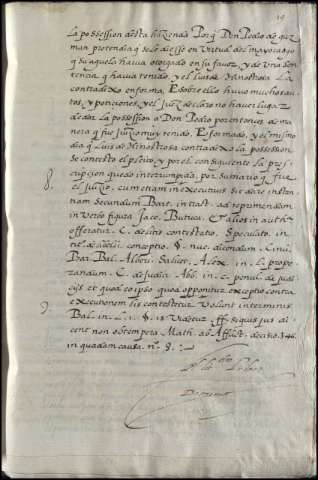 19
La possession desta hazienda Porq̃ Don Pedro de guz
man pretendia q̃ se le diesse en Virtud del mayorazgo
q̃ su aguelo havia otorgado en su favor, y de una sen
tencia q̃ havia tenido, y el luis de Henostrosa La
contradixo enforma, E sobre ello huvo muchos au
tos, y peticiones, y el Juez declaro no haver lugar
de dar La possession a Don Pedro por entonces de ma
nera q̃ fue Juizio muy reñido, E formado, y el mismo
dia q̃ Luis de Henostrosa contradixo La possession
se contesto el pleito, y por el consiguiente La pres
cripcion quedo interrumpida, por sumario q̃ fue
8. el Juizio, cum etiam in executivis sit dare instan
tiam secundum Bart. in tract. ad reprimendum
in verbo figura Jace. Butric. in auth
offeratur C. de litis contestatio. Speculato. in
tit. de conceptio. §. nuc. dicendum. Cinu.
Bar. Bal. Alberi. Salicet. Alex. in L. prope
randum C. de Judiciis Abb. in c. penul. de Judi
cijs et quod eo ipso quod opponitur exceptio contra
9. executionem lis contestetur Volunt interminis
Bal. in L. 1. §. is Videtur ff. si quis jus di
centi non obtempera Math. ab Afflict. decisio. 346.
in quadam causa nº. 8.